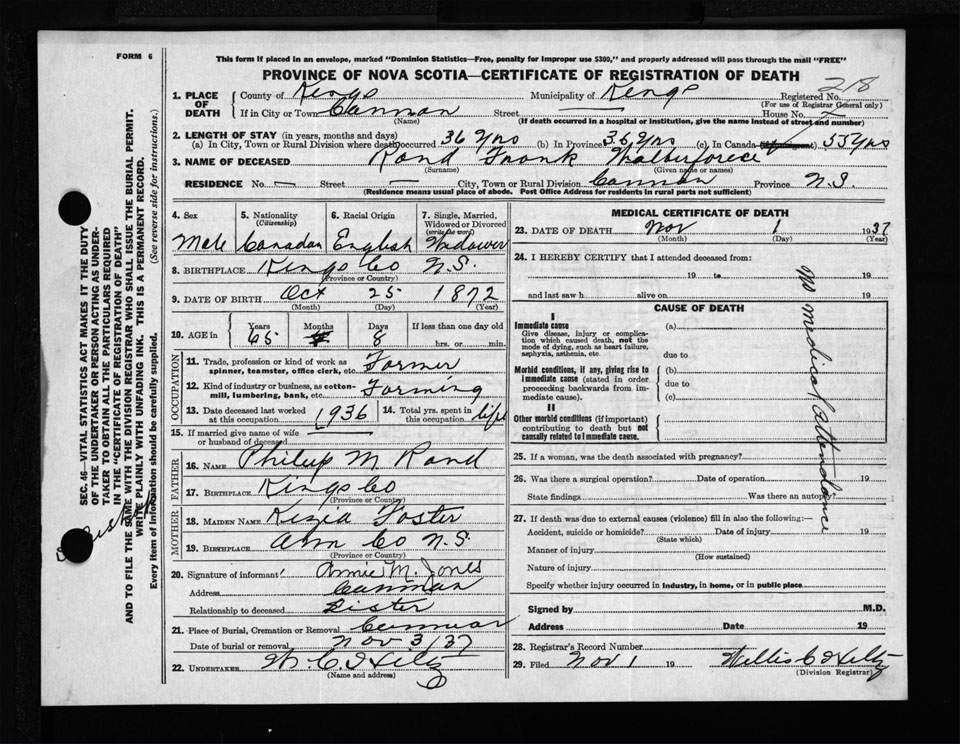 FORM 6
This form if placed in an envelope, marked "Dominion Statistics—Free, penalty for improper use $300," and properly addressed will pass through the mail "FREE"
PROVINCE OF NOVA SCOTIA—CERTIFICATE OF REGISTRATION OF DEATH
218
1. PLACE OF DEATH County of Kings Municipality of Kings Registered No.
(For use of Registrar General only)
If in City or Town Cannan Street — House No.
(Name) (If death occurred in a hospital or institution, give the name instead of street and number)
2. LENGTH OF STAY (in years, months and days)
(a) In City, Town or Rural Division where death occurred 36 yrs (b) In Province 36 yrs (c) In Canada (if immigrant) 55 yrs
3. NAME OF DECEASED Rand Frank
(Surname) (Given name or names)
RESIDENCE No. — Street — City, Town or Rural Division Cannan Province N.S.
(Residence means usual place of abode. Post Office Address for residents in rural parts not sufficient)
4. Sex 5. Nationality (Citizenship) 6. Racial Origin 7. Single, Married, Widowed or Divorced (write the word)
Male Canadan English Widower
8. BIRTHPLACE Kings Co N.S.
(Province or Country)
9. DATE OF BIRTH Oct 25 1872
(Month) (Day) (Year)
10. AGE in Years Months Days If less than one day old
65 8 hrs. or min.
OCCUPATION
11. Trade, profession or kind of work as spinner, teamster, office clerk, etc. Farmer
12. Kind of industry or business, as cotton-mill, lumbering, bank, etc. Farming
13. Date deceased last worked at this occupation 1936 14. Total yrs. spent in this occupation life
15. If married give name of wife or husband of deceased —
FATHER
16. NAME Philip M Rand
17. BIRTHPLACE Kings Co
(Province or Country)
MOTHER
18. MAIDEN NAME Kezia Foster
19. BIRTHPLACE Ann Co N.S.
(Province or Country)
20. Signature of informant Annie M. Jones
Address Cannan
Relationship to deceased Sister
21. Place of Burial, Cremation or Removal
Date of burial or removal Nov 3/37
22. UNDERTAKER W. C. Hiltz
(Name and address)
MEDICAL CERTIFICATE OF DEATH
23. DATE OF DEATH Nov 1 1937
(Month) (Day) (Year)
24. I HEREBY CERTIFY that I attended deceased from:
19 to 19
and last saw h alive on 19
No medical attendance
CAUSE OF DEATH
I
Immediate cause (a)
Give disease, injury or complication which caused death, not the mode of dying, such as heart failure, asphyxia, asthenia, etc.
due to
Morbid conditions, if any, giving rise to immediate cause (stated in order proceeding backwards from immediate cause). (b)
due to
(c)
II
Other morbid conditions (if important) contributing to death but not causally related to immediate cause.
25. If a woman, was the death associated with pregnancy?
26. Was there a surgical operation? Date of operation 19
State findings Was there an autopsy?
27. If death was due to external causes (violence) fill in also the following:—
Accident, suicide or homicide? Date of injury 19
(State which)
Manner of injury
(How sustained)
Nature of injury
Specify whether injury occurred in industry, in home, or in public place
Signed by M.D.
Address Date 19
28. Registrar's Record Number
29. Filed Nov 1 19 Willis C Hiltz
(Division Registrar)
SEC. 46—VITAL STATISTICS ACT MAKES IT THE DUTY
OF THE UNDERTAKER OR PERSON ACTING AS UNDER-
TAKER TO OBTAIN ALL THE PARTICULARS REQUIRED
IN THE "CERTIFICATE OF REGISTRATION OF DEATH"
AND TO FILE THE SAME WITH THE DIVISION REGISTRAR WHO SHALL ISSUE THE BURIAL PERMIT.
WRITE PLAINLY WITH UNFADING INK. THIS IS A PERMANENT RECORD.
Every item of information should be carefully supplied. (See reverse side for instructions.)